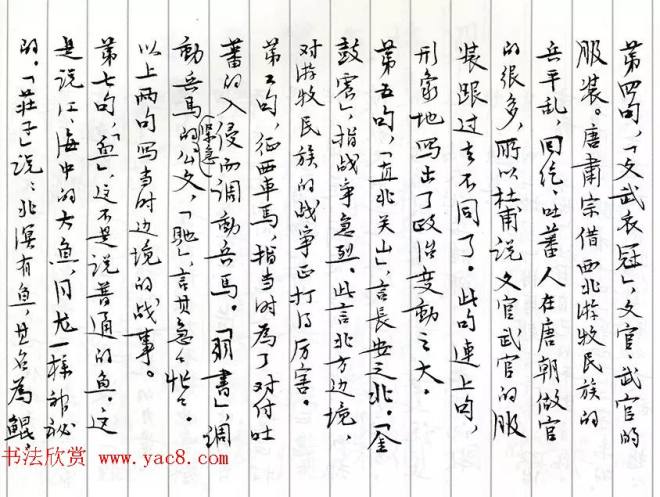 第四句，「文武衣冠」，文官、武官的
服装。唐肃宗借西北游牧民族的
兵平乱，回纥、吐蕃人在唐朝做官
的很多，所以杜甫说文官武官的服
装跟过去不同了。此句連上句，
形象地写出了政治变動之大。
第五句，「直北关山」，言長安之北。「金
鼓震」，指战争急烈。此言北方边境，
对游牧民族的战争正打得厉害。
第六句，征西車馬，指当时為了对付吐
蕃的入侵而調動兵馬。「羽書」，調
動兵馬的（緊急）公文，「馳」，言其急々忙々。
以上两句写当时边境的战事。
第七句，「鱼」，这不是说普通的鱼。这
是说江、海中的大鱼，同龙一様神秘
的。「莊子」说：北溟有鱼，其名為鯤。
书法欣赏 www.yac8.com